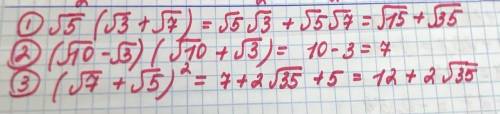 ① √5 (√3 + √7) = √5 √3 + √5 √7 = √15 + √35
② (√10 - √3) (√10 + √3) = 10 - 3 = 7
③ (√7 + √5)² = 7 + 2√35 + 5 = 12 + 2√35